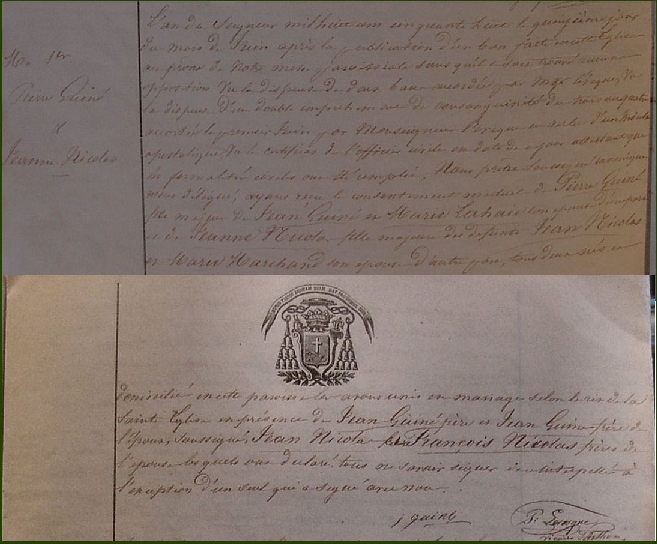 Mge 1er
Pierre Guiné
&
Jeanne Nicolas
L'an du Seigneur mil huit cent cinquante huit le quinzième jour
du mois de Juin après la publication d'un ban faite en cette Eglise
au prône de Notre messe paroissiale sans qu'il se soit trouvé aucune
opposition vu la dispense de deux bans accordée par Mgr l'évêque, vu
la dispense d'un double empêchement de consanguinité du trois au quatre
accordée le premier Juin par Monseigneur l'évêque en vertu d'un Indult
apostolique vu le certificat de l'officier civil en date de ce jour attestant que
les formalités civiles ont été remplies, Nous prêtre soussigné
ayant reçu le consentement mutuel de Pierre Guiné
fils majeur de Jean Guiné et Marie son épouse d'une part
et de Jeanne Nicolas fille majeure des defunts Jean Nicolas
et Marie Marchand son épouse d'autre part, tous deux nés et
domiciliés en cette paroisse les avons unis en mariage selon le rit de la
Sainte Eglise en présence de Jean Guiné père et Jean Guiné frère de
l'époux, Soussigné, Jean Nicolas François Nicolas frères de
l'épouse lesquels ont déclaré tous ne savoir signer de ce interpellés à
l'exception d'un seul qui a signé avec nous.
j guiné